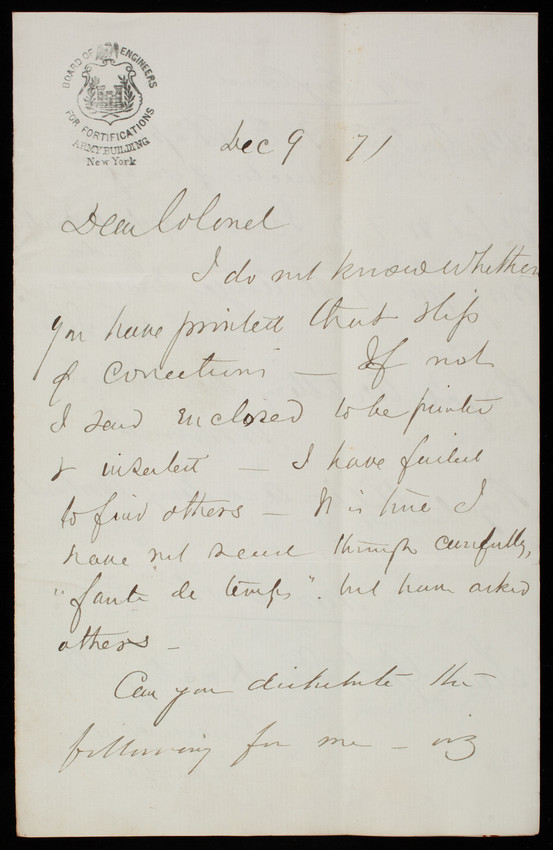 BOARD OF ENGINEERS
FOR FORTIFICATIONS
ARMY BUILDING
New York
Dec 9 71
Dear Colonel
I do not know whether
you have printed that slip
of corrections — If not
I send enclosed to be printed
& inserted — I have failed
to find others — It is true I
have not read through carefully,
"faute de temps". but have asked
others —
Can you distribute the
following for me — viz